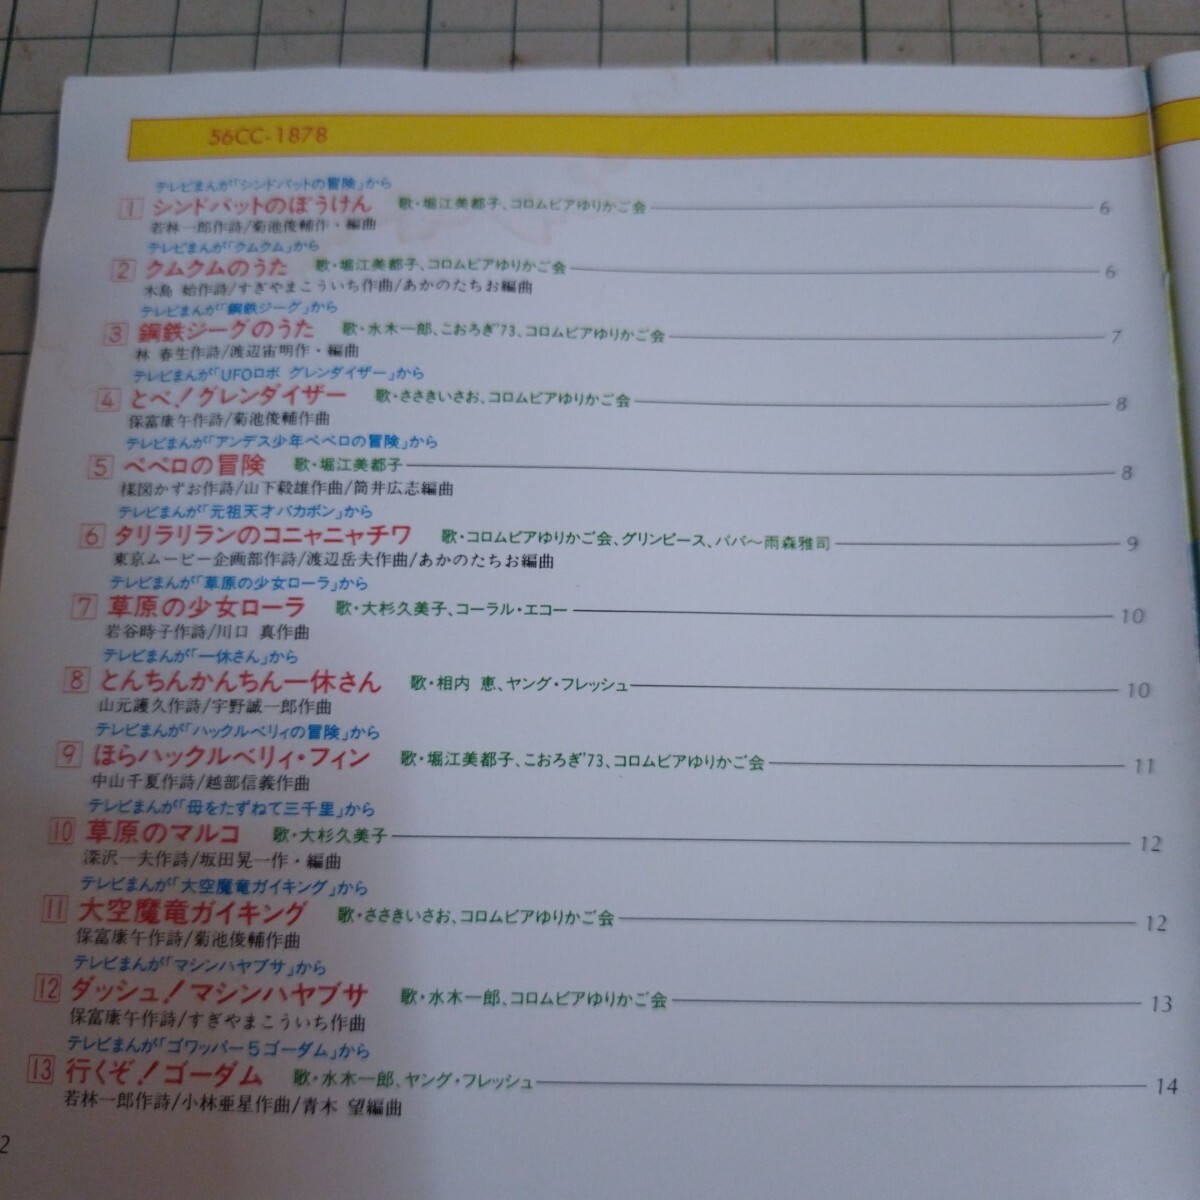 56CC-1878
テレビまんが「シンドバットの冒険」から
1 シンドバットのぼうけん 歌・堀江美都子、コロムビアゆりかご会 6
若林一郎作詩/菊池俊輔作・編曲
テレビまんが「クムクム」から
2 クムクムのうた 歌・堀江美都子、コロムビアゆりかご会 6
木島 始作詩/すぎやまこういち作曲/あかのたちお編曲
テレビまんが「鋼鉄ジーグ」から
3 鋼鉄ジーグのうた 歌・水木一郎、こおろぎ'73、コロムビアゆりかご会 7
林 春生作詩/渡辺宙明作・編曲
テレビまんが「UFOロボ グレンダイザー」から
4 とべ!グレンダイザー 歌・ささきいさお、コロムビアゆりかご会 8
保富康午作詩/菊池俊輔作曲
テレビまんが「アンデス少年ペペロの冒険」から
5 ペペロの冒険 歌・堀江美都子 8
楳図かずお作詩/山下毅雄作曲/筒井広志編曲
テレビまんが「元祖天才バカボン」から
6 タリラリランのコニャニャチワ 歌・コロムビアゆりかご会、グリンピース、パパ〜雨森雅司 9
東京ムービー企画部作詩/渡辺岳夫作曲/あかのたちお編曲
テレビまんが「草原の少女ローラ」から
7 草原の少女ローラ 歌・大杉久美子、コーラル・エコー 10
岩谷時子作詩/川口 真作曲
テレビまんが「一休さん」から
8 とんちんかんちん一休さん 歌・相内 恵、ヤング・フレッシュ 10
山元護久作詩/宇野誠一郎作曲
テレビまんが「ハックルベリィの冒険」から
9 ほらハックルベリィ・フィン 歌・堀江美都子、こおろぎ'73、コロムビアゆりかご会 11
中山千夏作詩/越部信義作曲
テレビまんが「母をたずねて三千里」から
10 草原のマルコ 歌・大杉久美子 12
深沢一夫作詩/坂田晃一作・編曲
テレビまんが「大空魔竜ガイキング」から
11 大空魔竜ガイキング 歌・ささきいさお、コロムビアゆりかご会 12
保富康午作詩/菊池俊輔作曲
テレビまんが「マシンハヤブサ」から
12 ダッシュ!マシンハヤブサ 歌・水木一郎、コロムビアゆりかご会 13
保富康午作詩/すぎやまこういち作曲
テレビまんが「ゴワッパー5ゴーダム」から
13 行くぞ!ゴーダム 歌・水木一郎、ヤング・フレッシュ 14
若林一郎作詩/小林亜星作曲/青木 望編曲
2